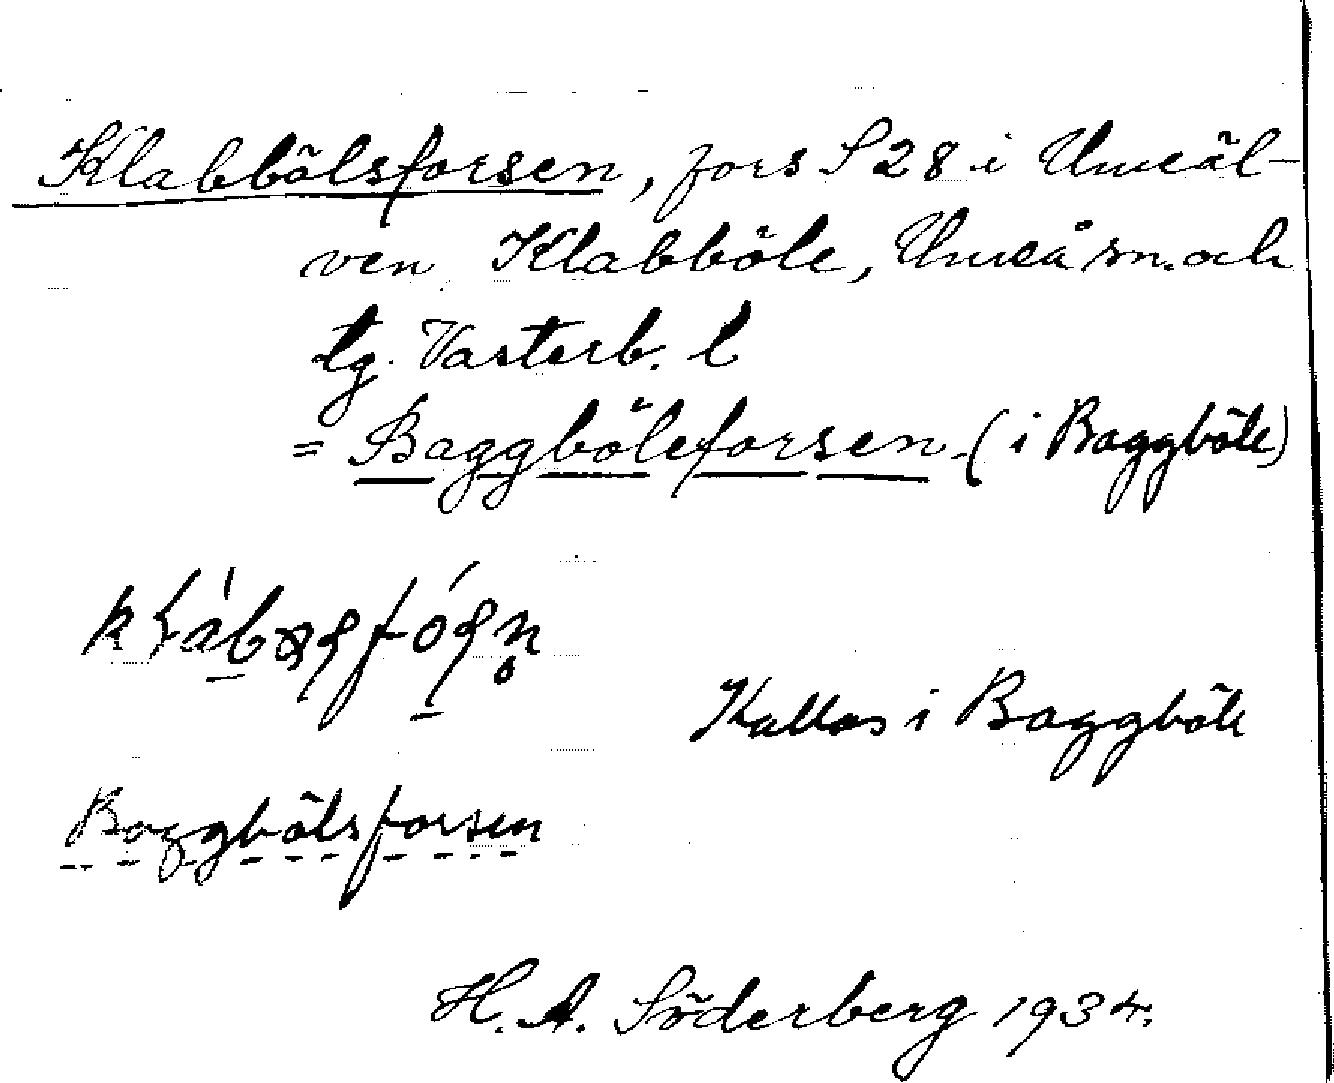 Klabbölsforsen, fors S 28 i Umeäl-
ven, Klabböle, Umeå sn. och
tg. Västerb. l
= Baggböleforsen (i Baggböle)
Kallas i Baggböle
Baggbölsforsen
H. A. Söderberg 1934.